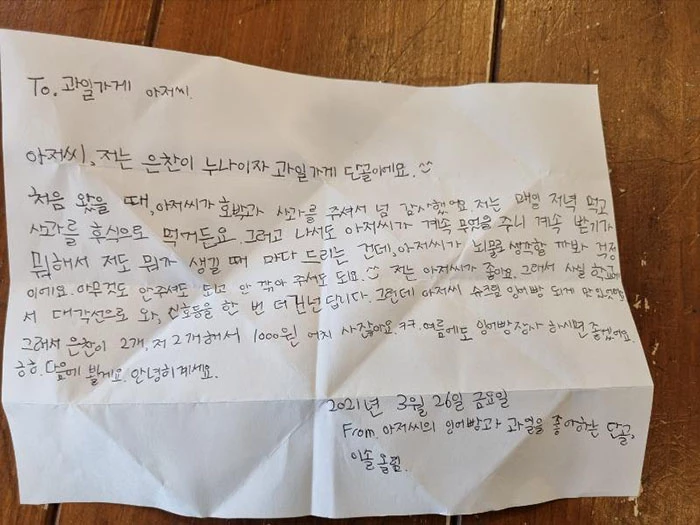 To. 과일가게 아저씨.
아저씨, 저는 은찬이 누나이자 과일가게 단골이에요.^^
처음 왔을 때, 아저씨가 호박과 사과를 주셔서 넘 감사했어요 저는 매일 저녁 먹고
사과를 후식으로 먹거든요. 그러고 나서도 아저씨가 계속 무엇을 주니 계속 받기가
뭐해서 저도 뭐가 생길 때 마다 드리는 건데, 아저씨가 뇌물로 생각할 까봐 걱정
이에요. 아무것도 안주셔도 되고 안 깎아 주셔도 되요.^^ 저는 아저씨가 좋아요. 그래서 사실 학교에
서 대각선으로 와, 신호등을 한 번 더 건넌답니다. 그런데 아저씨 슈크림 잉어빵 되게 맛있
그래서 은찬이 2개, 저 2개해서 1000원 어치 사잖아요.ㅋㅋ. 여름에도 잉어빵장사 하시면 좋겠어요.
ㅎㅎ. 다음에 뵐게요. 안녕히계세요.
2021년 3월 26일 금요일
From. 아저씨의 잉어빵과 과일을 좋아하는 단골,
이솔 올림.